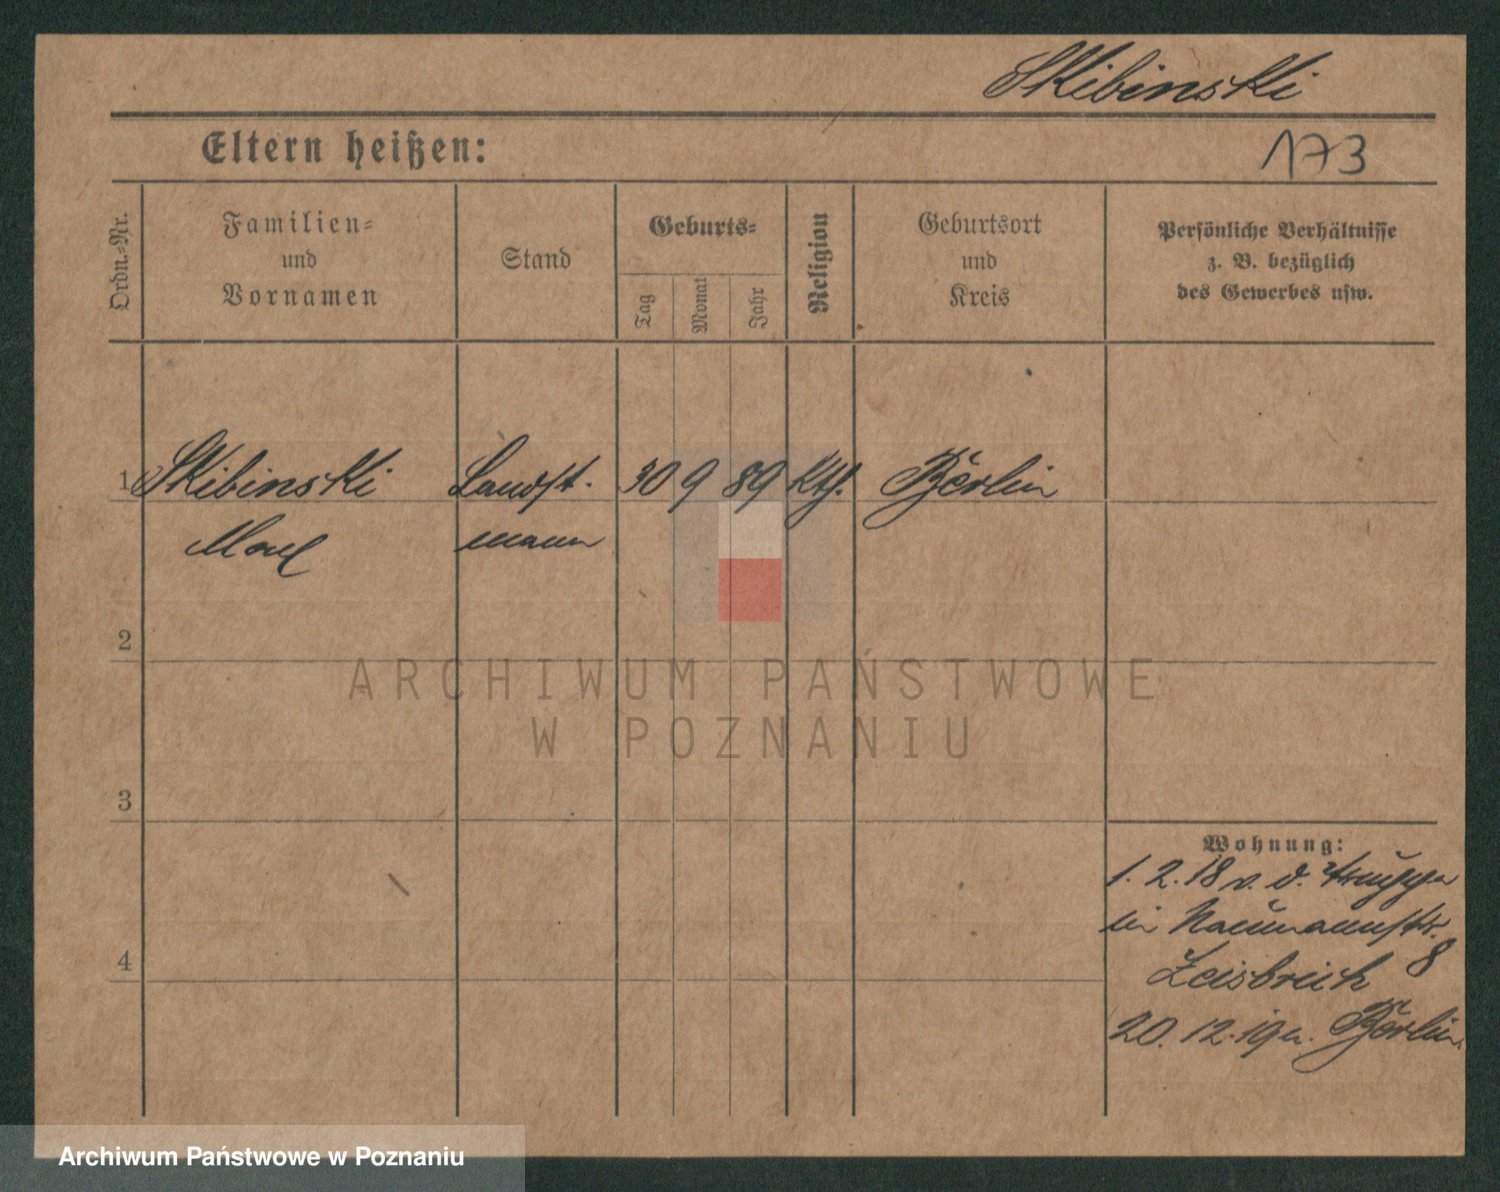 Skibinski
Eltern heißen:
173
Ordn.-Nr.
Familien-
und
Vornamen
Stand
Geburts-
Tag
Monat
Jahr
Religion
Geburtsort
und
Kreis
Persönliche Verhältnisse
z. B. bezüglich
des Gewerbes usw.
1 Skibinski Landst. 30 9 89 Kth. Berlin
Max mann
2
3
4
Wohnung:
1. 2. 18 v. d. Truppe
in Naumannstr.
8
20. 12. 19 n. Berlin
ARCHIWUM PAŃSTWOWE
W POZNANIU
Archiwum Państwowe w Poznaniu